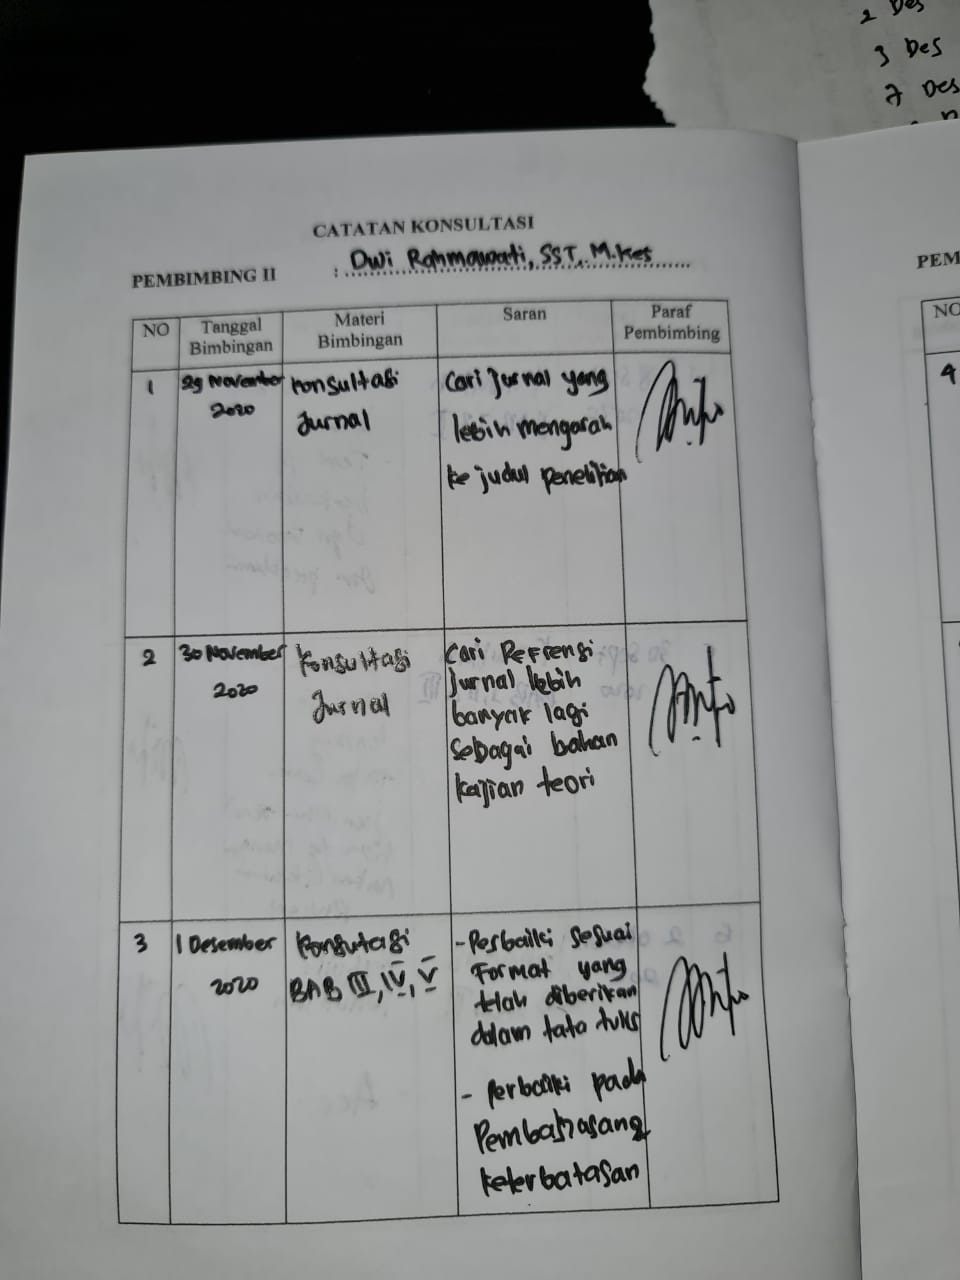 2 Des
3 Des
7 Des
CATATAN KONSULTASI
PEMBIMBING II : Dwi Rahmawati, SST, M.Kes
NO
Tanggal
Bimbingan
Materi
Bimbingan
Saran
Paraf
Pembimbing
1
29 November
2020
Konsultasi
Jurnal
Cari Jurnal yang
lebih mengarah
ke judul penelitian
2
30 November
2020
Konsultasi
Jurnal
Cari Refrensi
Jurnal lebih
banyak lagi
sebagai bahan
kajian teori
3
1 Desember
2020
Konsutasi
BAB III, IV, V
- Perbaiki sesuai
Format yang
telah diberikan
dalam tata tulis
- Perbaiki pada
Pembahasang
keterbatasan
PEM
NO
4